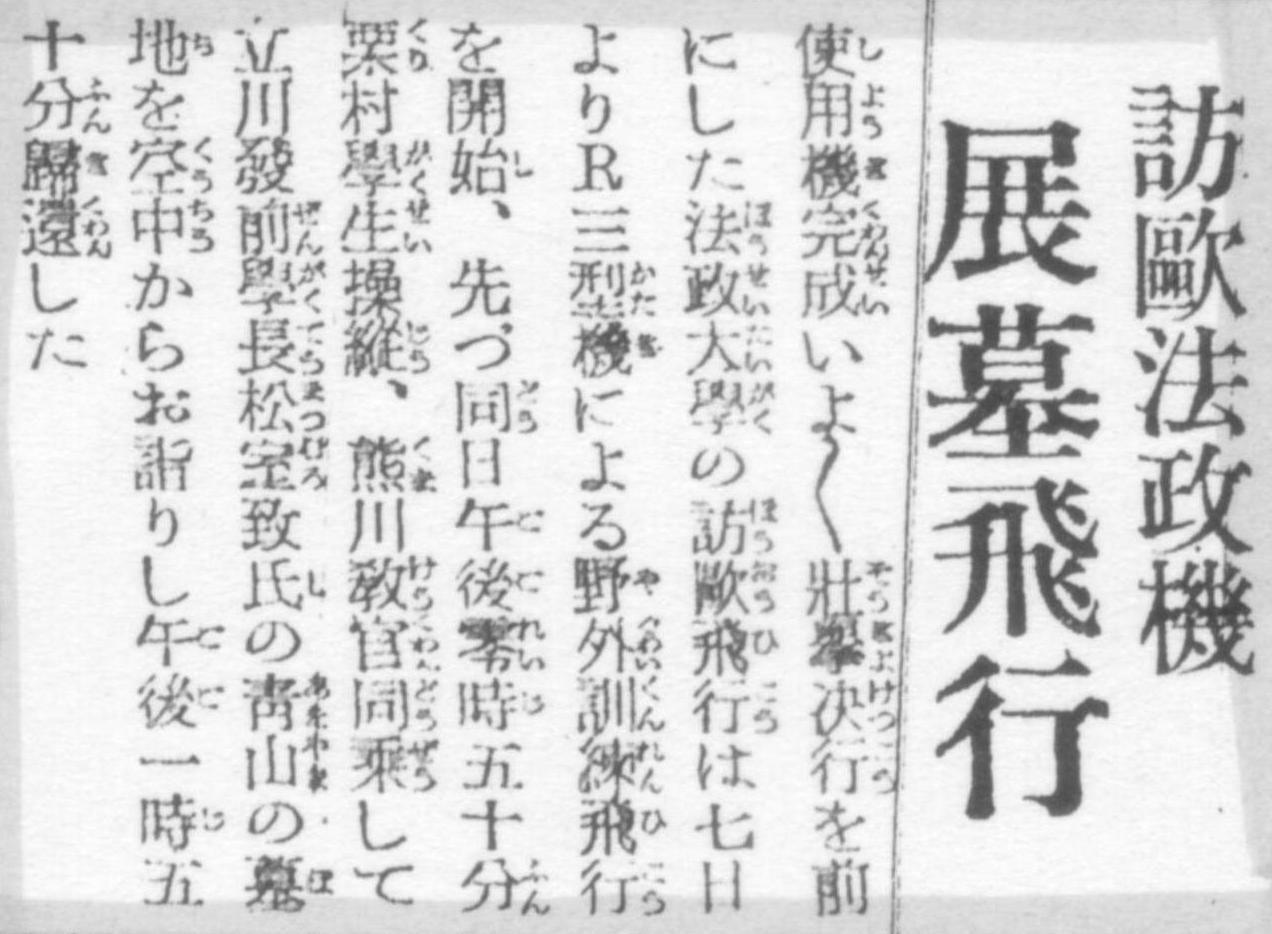 訪歐法政機
展墓飛行
使用機完成いよ〱壯擧決行を前
にした法政大學の訪歐飛行は七日
よりR三型機による野外訓練飛行
を開始、先づ同日午後零時五十分
栗村學生操縱、熊川敎官同乘して
立川發前學長松室致氏の靑山の墓
地を空中からお詣りし午後一時五
十分歸還した